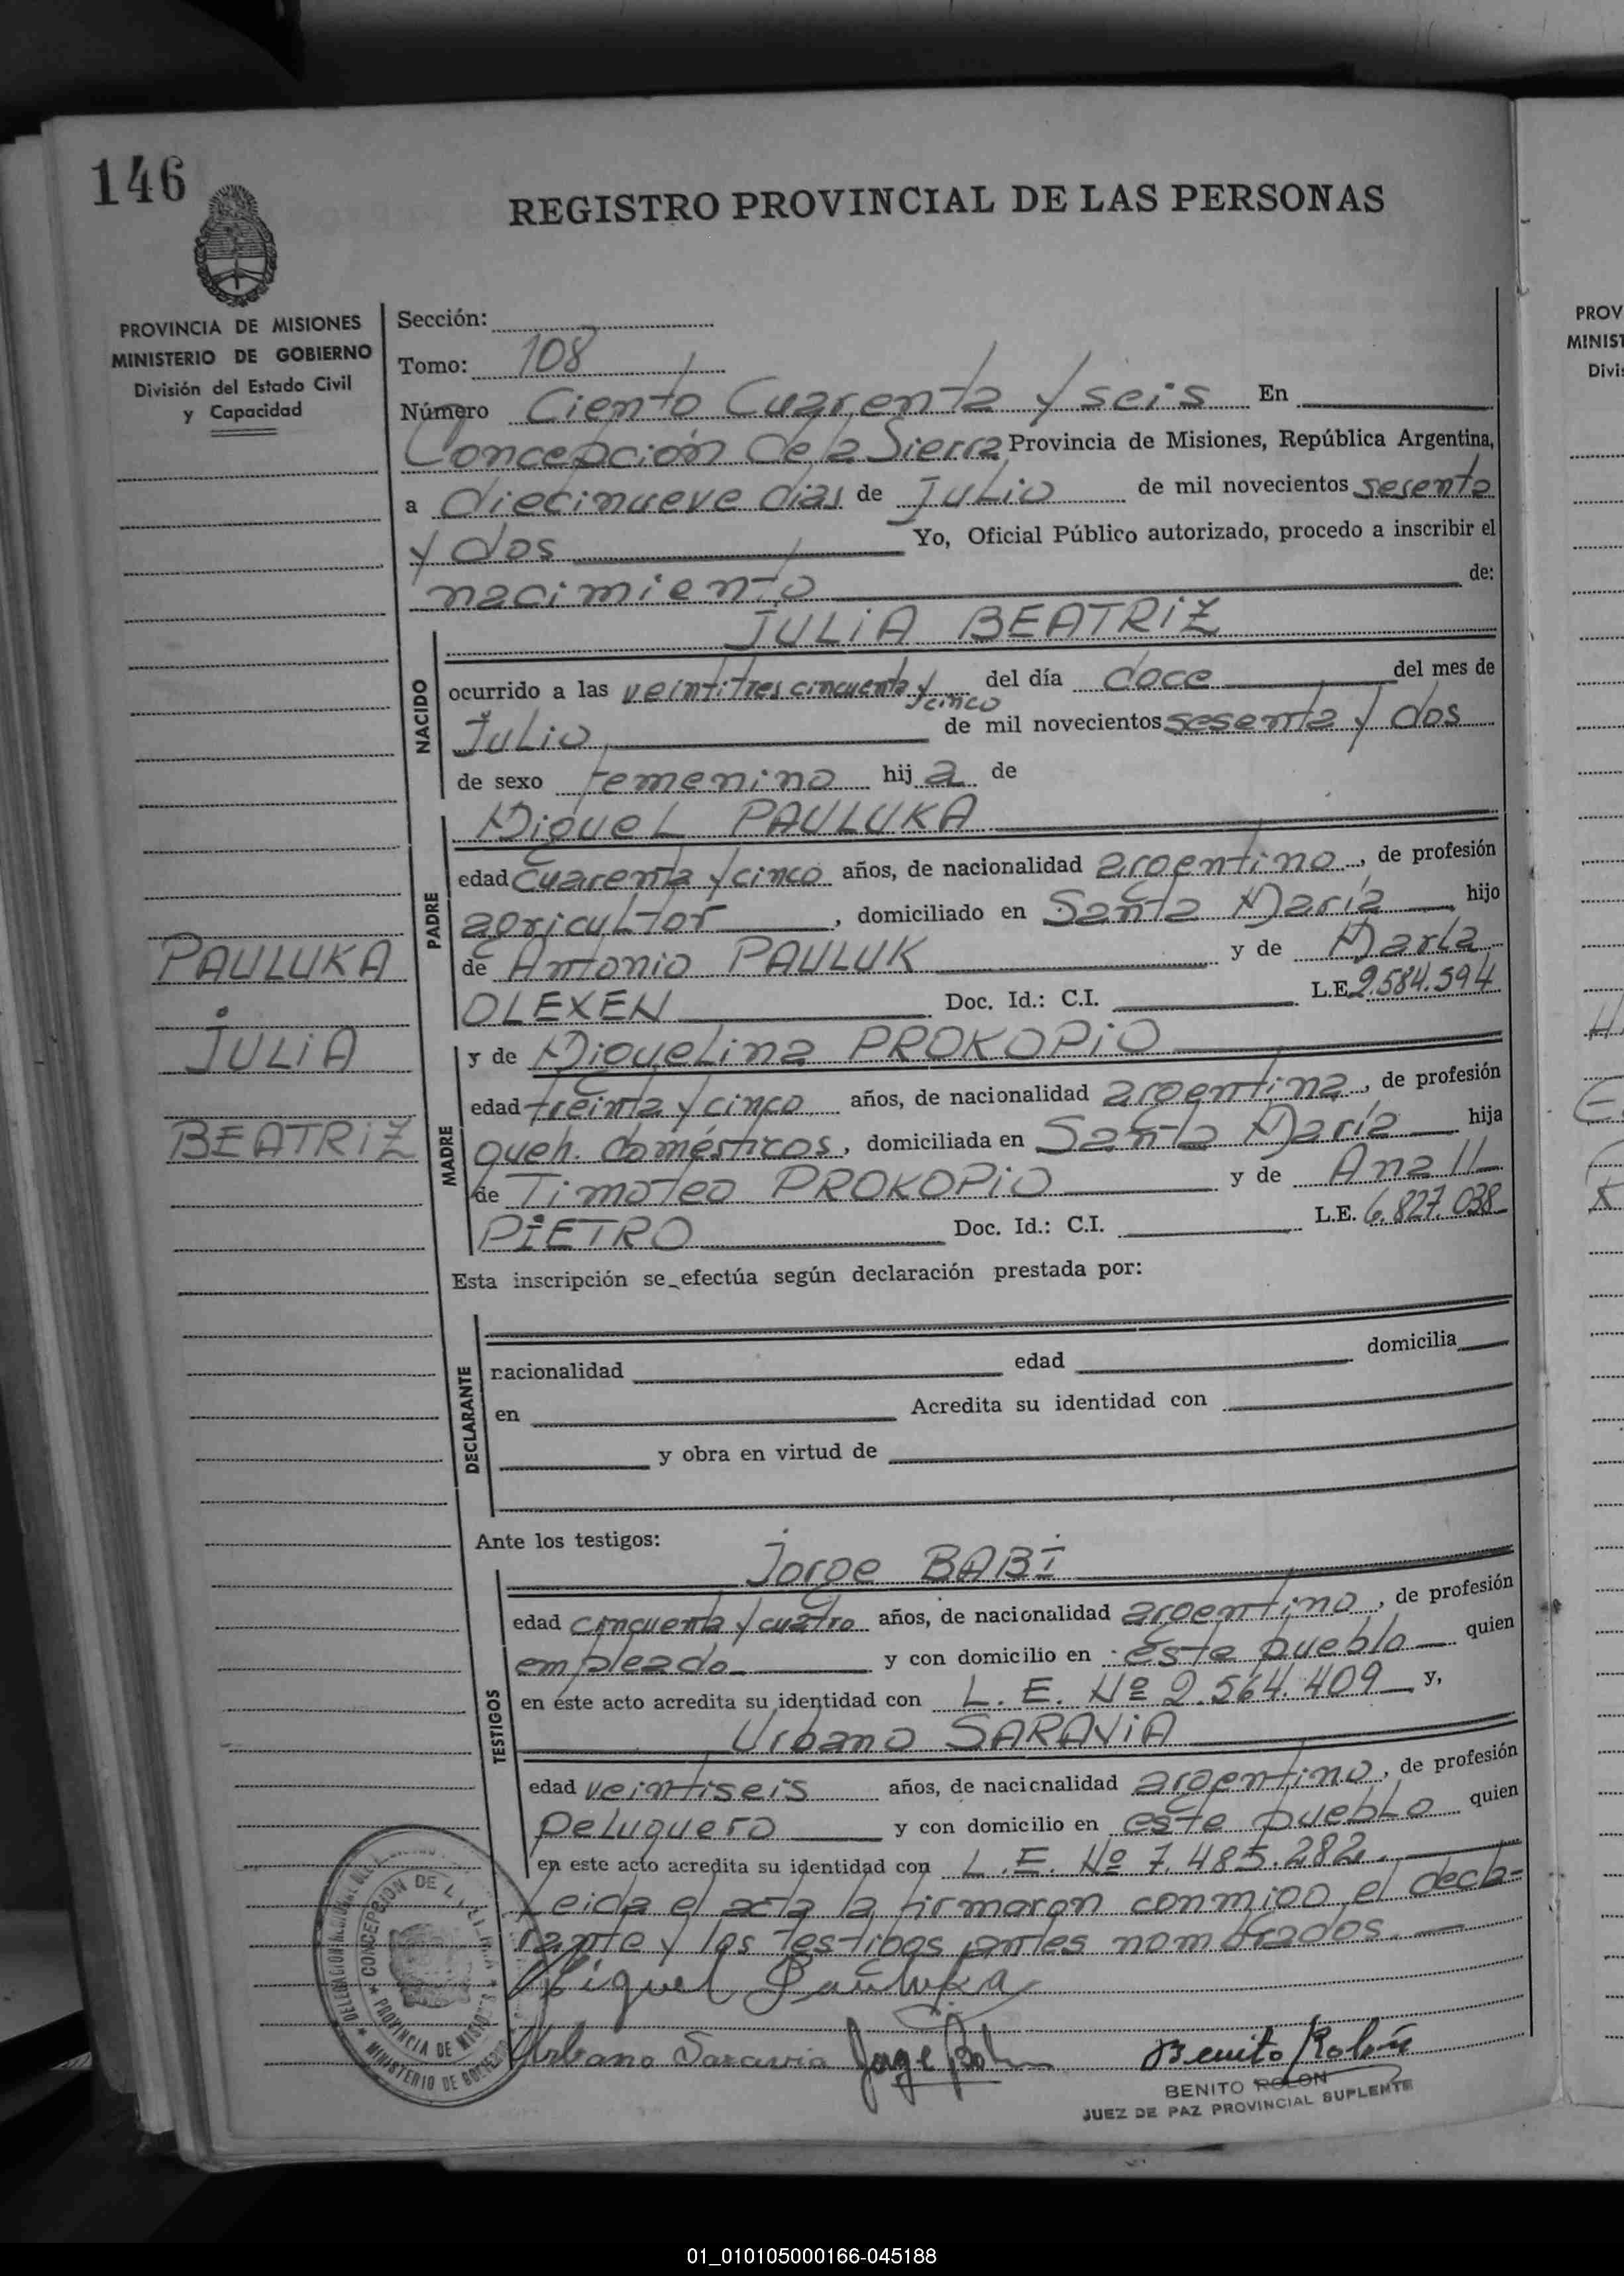 146
REGISTRO PROVINCIAL DE LAS PERSONAS
PROVINCIA DE MISIONES
MINISTERIO DE GOBIERNO
División del Estado Civil
y Capacidad
Sección:
Tomo: 108
Número Ciento Cuarenta y seis En
Concepción de la Sierra Provincia de Misiones, República Argentina,
a diecinueve dias de Julio de mil novecientos sesenta
y dos Yo, Oficial Público autorizado, procedo a inscribir el
nacimiento de:
JULIA BEATRIZ
NACIDO
ocurrido a las veintitres cincuenta y cinco del día doce del mes de
Julio de mil novecientos sesenta y dos
de sexo femenino hij a de
PADRE
Miguel PAULUKA
edad cuarenta y cinco años, de nacionalidad argentino, de profesión
agricultor, domiciliado en Santa María hijo
de Antonio PAULUK y de María
OLEXEN Doc. Id.: C.I. L.E. 2.584.594
PAULUKA
JULIA
BEATRIZ
MADRE
y de Miguelina PROKOPIO
edad treinta y cinco años, de nacionalidad argentina, de profesión
queh. domésticos, domiciliada en Santa María hija
de Timoteo PROKOPIO y de Ana
PIETRO Doc. Id.: C.I. L.E. 6.827.038
Esta inscripción se efectúa según declaración prestada por:
DECLARANTE
nacionalidad edad domicilia
en Acredita su identidad con
y obra en virtud de
Ante los testigos:
TESTIGOS
Jorge BABI
edad cincuenta y cuatro años, de nacionalidad argentino, de profesión
empleado y con domicilio en éste pueblo quien
en este acto acredita su identidad con L. E. Nº 2.564.409 y,
Urbano SARAVIA
edad veintiseis años, de nacionalidad argentino, de profesión
peluquero y con domicilio en este pueblo quien
en este acto acredita su identidad con L. E. Nº 7.485.282.
Leida el acta la firmaron conmigo el decla-
rante y los testigos antes nombrados.
Miguel Pauluka
Urbano Saravia Jorge Benito Rolón
BENITO ROLON
JUEZ DE PAZ PROVINCIAL SUPLENTE
CONCEPCION DE
PROVINCIA DE MISIONES
MINISTERIO DE GOBIERNO
PROV
MINIST
Divis
01_010105000166-045188